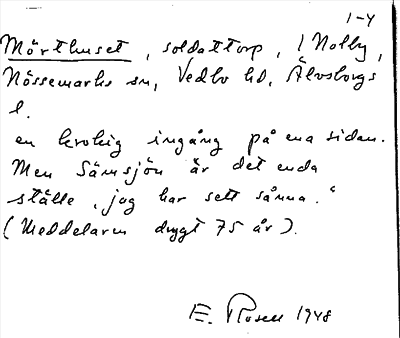 1-4
Mörthuset, soldattorp, i Nolby,
Nössemarks sn, Vedbo hd, Älvsborgs
l.
en krokig ingång på ena sidan.
Men Sämsjön är det enda
ställe, jag har sett sånna."
(Meddelaren drygt 75 år).
E. Rosell 1948